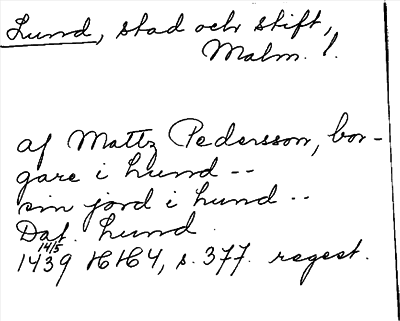 Lund, stad och stift,
Malm. l.
af Mattz Pedersson, bor-
gare i Lund --
sin jord i Lund --
Dat. Lund
14/5
1439 HH4, s. 377. regest.